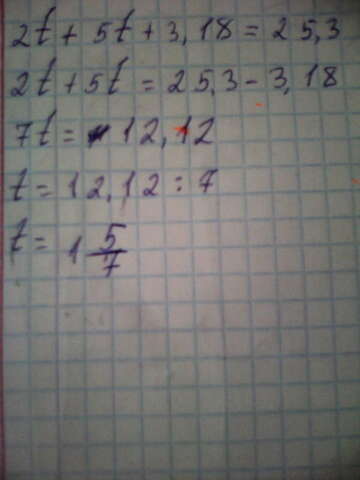 2t + 5t + 3,18 = 25,3
2t + 5t = 25,3 - 3,18
7t = 12,12
t = 12,12 : 7
t = 1 5/7